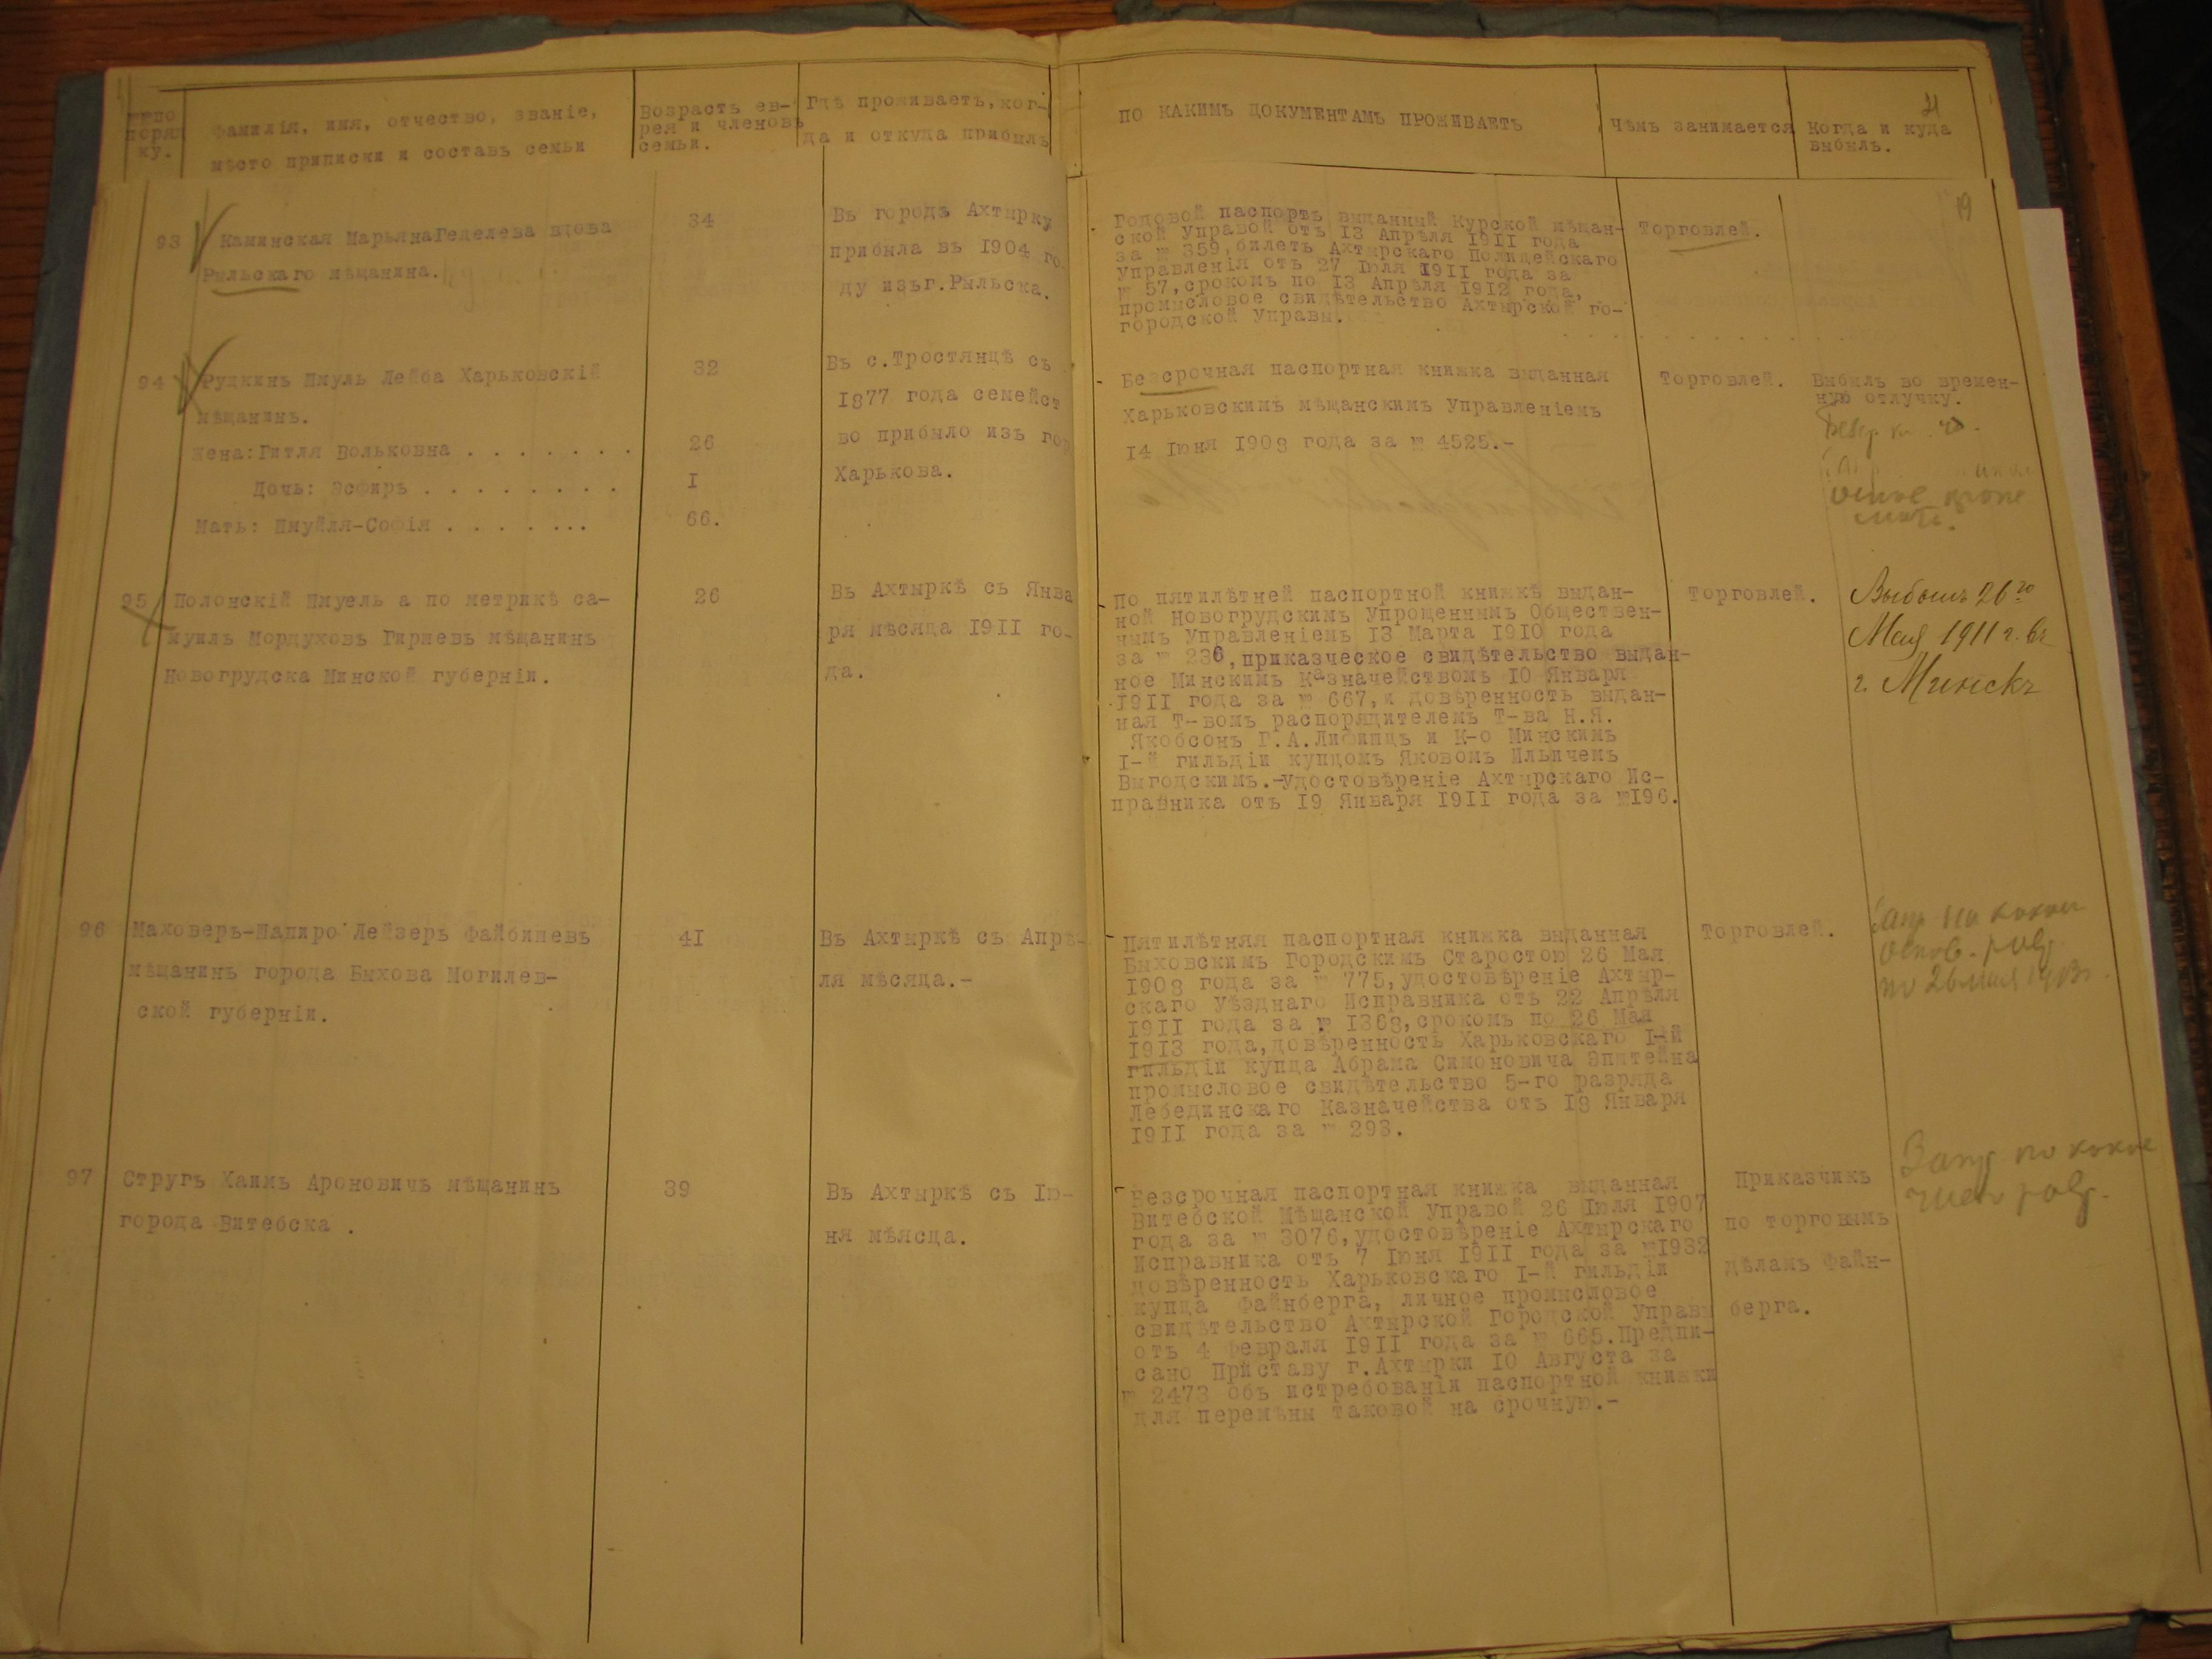 21
№№ по
поряд
ку.
Фамилія, имя, отчество, званіе,
мѣсто приписки и составъ семьи
Возрастъ ев-
рея и членовъ
семьи.
Гдѣ проживаетъ, ког-
да и откуда прибылъ
ПО КАКИМЪ ДОКУМЕНТАМЪ ПРОЖИВАЕТЪ
Чѣмъ занимается
Когда и куда
выбылъ.
19
93
Каминская МарьянаГеделева вдова
Рыльскаго мѣщанина.
34
Въ городъ Ахтырку
прибыла въ 1904 го-
ду изъг.Рыльска.
Годовой паспортъ выданный Курской мѣщан-
ской Управой отъ 13 Апрѣля 1911 года
за № 359, билетъ Ахтырскаго Полицейскаго
Управленія отъ 27 Іюля 1911 года за
№ 57, срокомъ по 13 Апрѣля 1912 года,
промысловое свидѣтельство Ахтырской го-
городской Управы.
Торговлей.
94
Рудкинъ Шмуль Лейба Харьковскій
мѣщанинъ.
Жена:Гитля Вольковна . . . . . . .
Дочь: Эсфирь . . . . . . . .
Мать: Шмуйля-Софія . . . . . ...
32
26
I
66.
Въ с.Тростянцѣ съ
1877 года семейст
во прибыло изъ гор
Харькова.
Безсрочная паспортная книжка выданная
Харьковскимъ мѣщанскимъ Управленіемъ
14 Іюня 1908 года за № 4525.-
Торговлей.
Выбылъ во времен-
ную отлучку.
95
Полонскій Шмуель а по метрикѣ са-
муилъ Мордуховъ Гиршевъ мѣщанинъ
Новогрудска Минской губерніи.
26
Въ Ахтыркѣ съ Янва
ря мѣсяца 1911 го-
да.
По пятилѣтней паспортной книжкѣ выдан-
ной Новогрудскимъ Упрощеннымъ Обществен-
нымъ Управленіемъ 13 Марта 1910 года
за № 236, приказческое свидѣтельство выдан-
ное Минскимъ Казначействомъ 10 Января
1911 года за № 667, и довѣренность выдан-
ная Т-вомъ распорядителемъ Т-ва Н.Я.
Якобсонъ Г.А.Лифшицъ и К-о Минскимъ
I-й гильдіи купцомъ Яковомъ Ильичемъ
Выгодскимъ.-Удостовѣреніе Ахтырскаго Ис-
правника отъ 19 Января 1911 года за №196.
Торговлей.
Выбылъ 26 го
Мая 1911 г. въ
г. Минскъ
96
Маховеръ-Шапиро Лейзеръ Файбишевъ
мѣщанинъ города Быхова Могилев-
ской губерніи.
41
Въ Ахтыркѣ съ Апрѣ-
ля мѣсяца.-
Пятилѣтняя паспортная книжка выданная
Быховскимъ Городскимъ Старостою 26 Мая
1908 года за № 775, удостовѣреніе Ахтыр-
скаго Уѣзднаго Исправника отъ 22 Апрѣля
1911 года за № 1368, срокомъ по 26 Мая
1913 года, довѣренность Харьковскаго I-й
гильдіи купца Абрама Симоновича Эпштейна
промысловое свидѣтельство 5-го разряда
Лебединскаго Казначейства отъ 18 Января
1911 года за № 293.
Торговлей.
по 26 мая 1913г.
97
Стругъ Хаимъ Ароновичъ мѣщанинъ
города Витебска .
39
Въ Ахтыркѣ съ Ію-
ня мѣясца.
Безсрочная паспортная книжка выданная
Витебской Мѣщанской Управой 26 Іюля 1907
года за № 3076, удостовѣреніе Ахтырскаго
Исправника отъ 7 Іюня 1911 года за №1932
довѣренность Харьковскаго I-й гильдіи
купца Файнберга, личное промысловое
свидѣтельство Ахтырской Городской Управы
отъ 4 Февраля 1911 года за № 665.Предпи-
сано Приставу г.Ахтырки 10 Августа за
№ 2473 объ истребованіи паспортной книжки
для перемѣны таковой на срочную.-
Приказчикъ
по торговымъ
дѣламъ Файн-
берга.